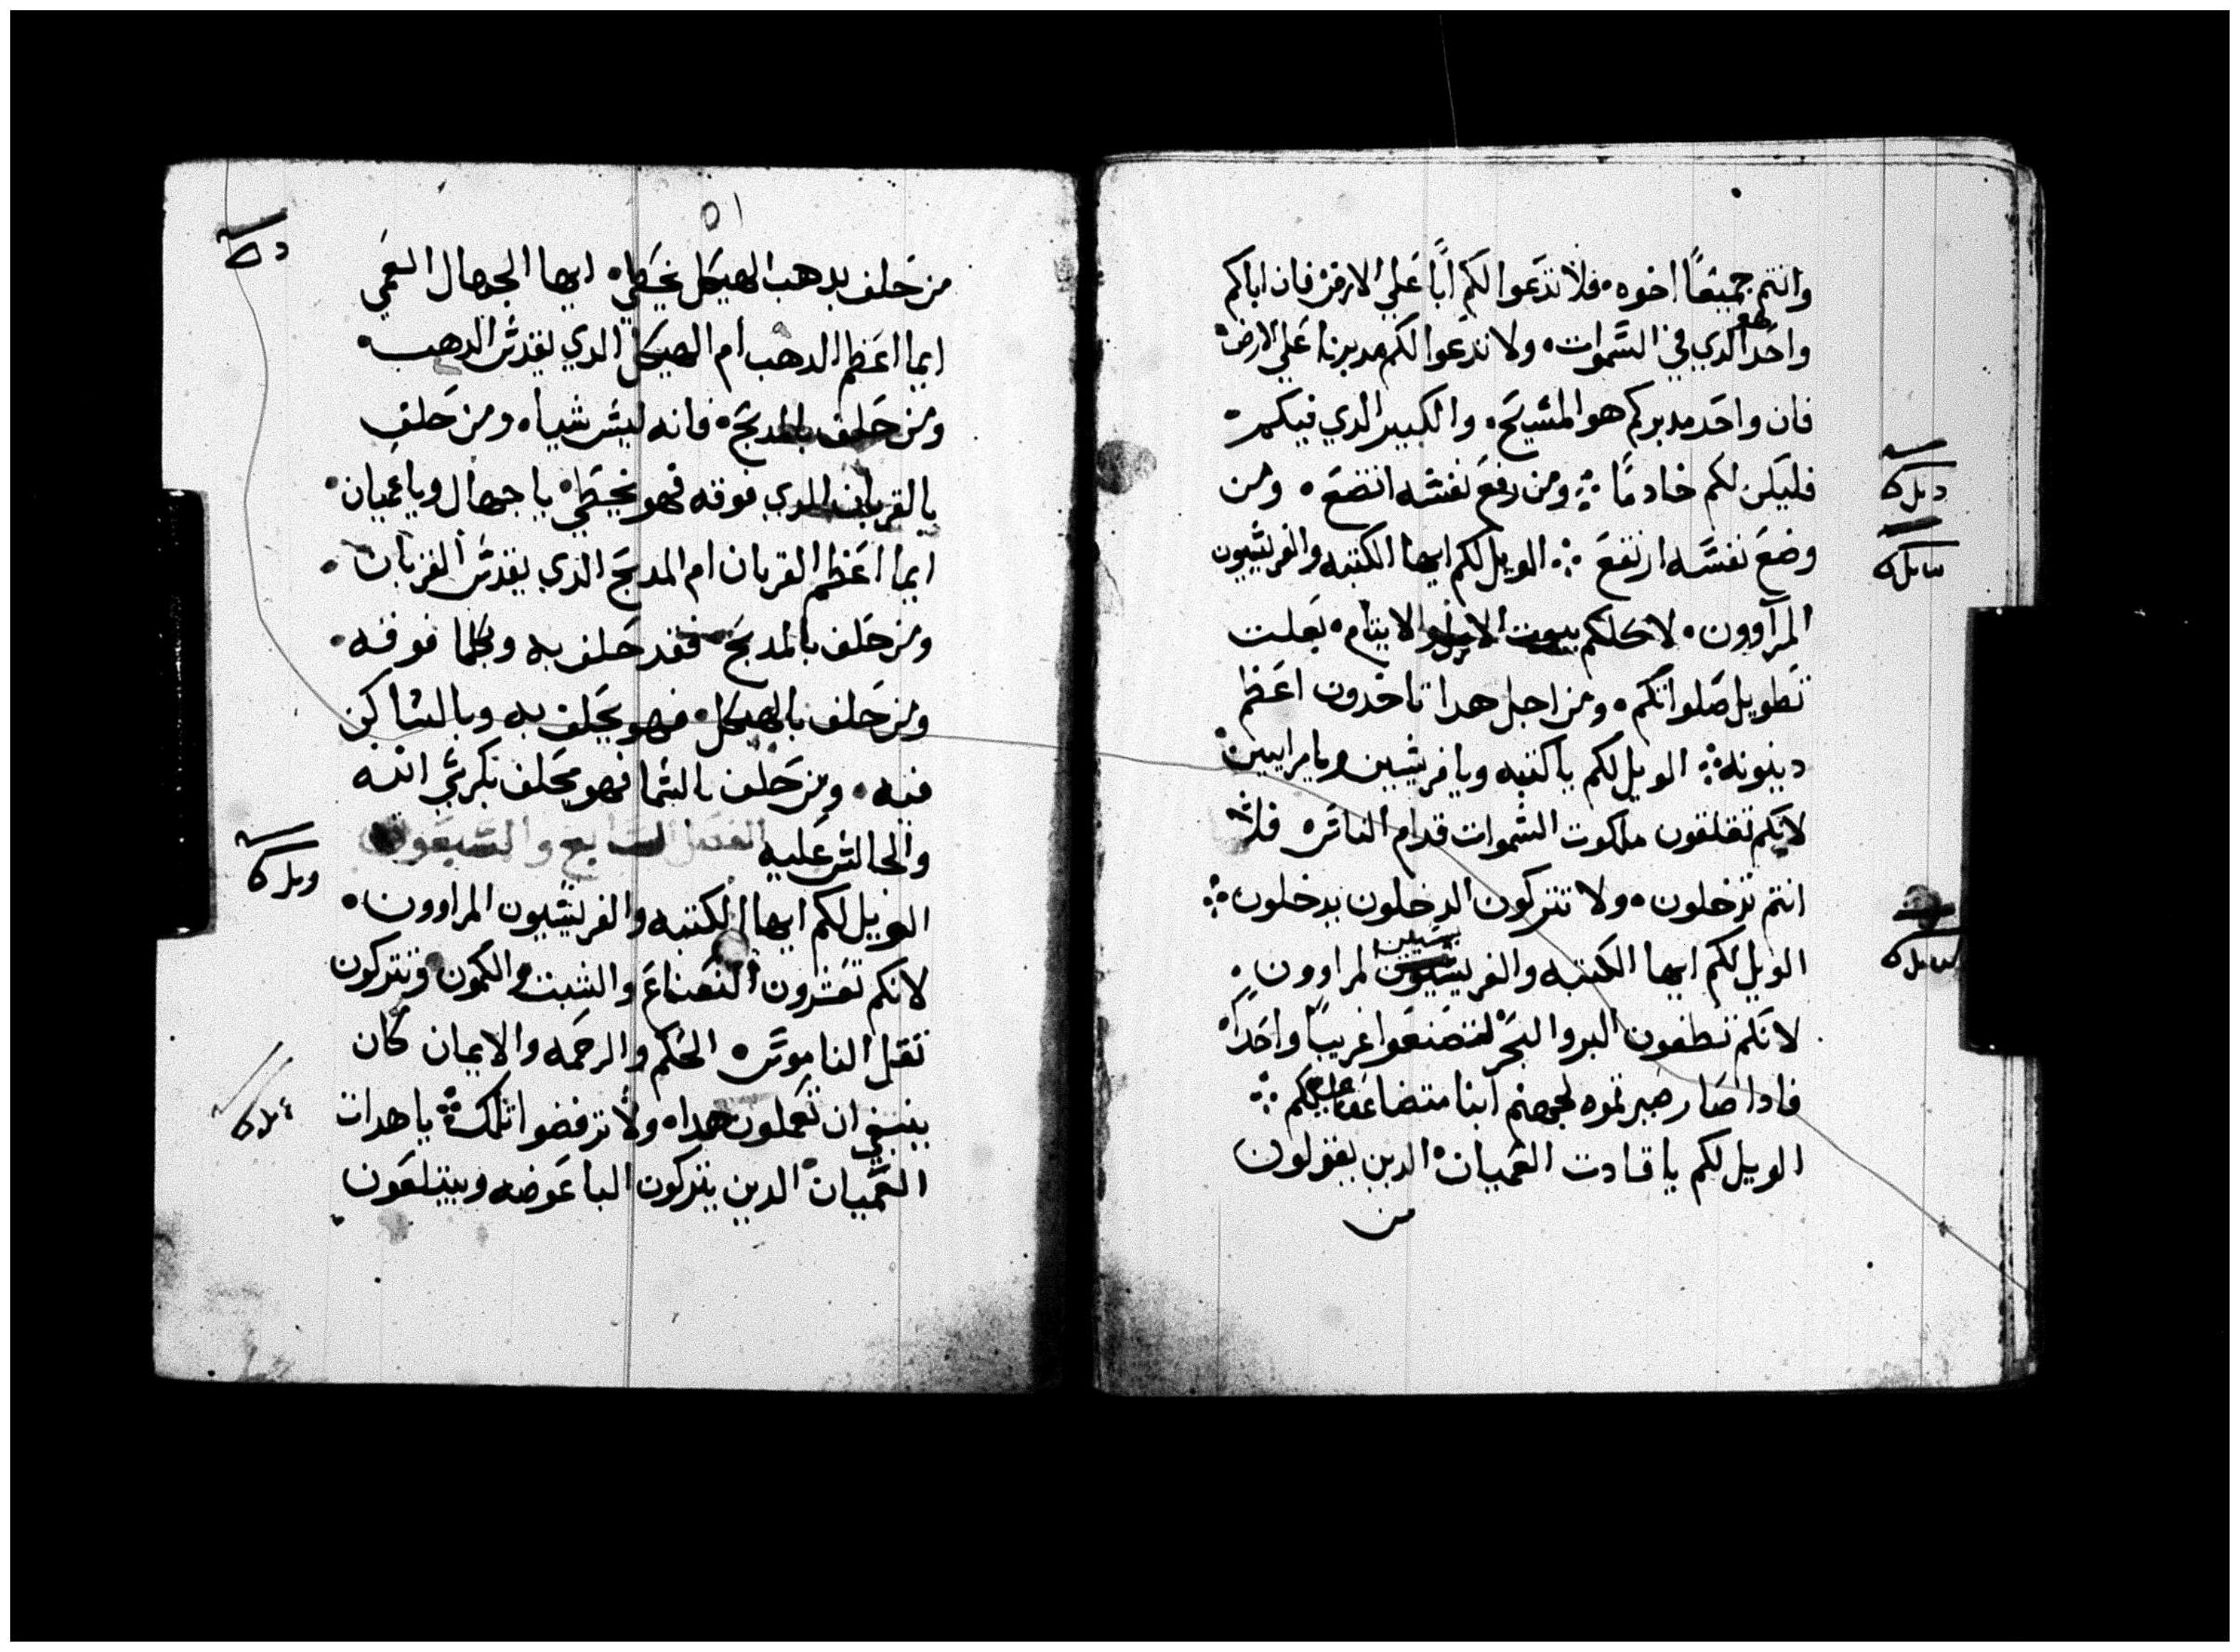 وانتم جميعًا اخوه فلا تدعوا لكم ابًا علي الارض فان اباكم
واحد هو الدي في السموات ولا تدعوا لكم مدبرنا علي الارض
فان واحد مدبركم هو المسيح والكبير الدي فيكم
فليكن لكم خادمًا ومن رفع نفسه اتضع ومن
وضع نفسه ارتفع الويل لكم ايها الكتبه والفريسيون
المرآوون لاكلكم بيوت الارامل والايتام بعلت
تطويل صلواتكم ومن اجل هدا تاخدون اعظم
دينونه الويل لكم يا كتبه ويا فريسيين ويا مراييين
لانكم تغلقون ملكوت السموات قدام الناس فلا
انتم تدخلون ولا تتركون الدخلون يدخلون
الويل لكم ايها الكتبه والفريسيون المراوون
لانكم تطفون البر والبحر لتصنعوا غريبًا واحدًا
فادا صار صيرتموه لجهنم ابنا متضاعفا عليكم
الويل لكم يا قادت العميان الدين يقولون
من
٥١
من حلف بدهب الهيكل يخطي ايها الجهال العمي
ايما اعظم الدهب ام الهيكل الدي يقدس الدهب
ومن حلف بالمدبح فانه ليس شيا ومن حلف
بالقربان الدي فوقه فهو يخطي يا جهال ويا عميان
ايما اعظم القربان ام المدبح الدي يقدس القربان
ومن حلف بالمدبح فقد حلف به وبكلما فوقه
ومن حلف بالهيكل فهو يحلف به وبالساكن
فيه ومن حلف بالسما فهو يحلف بكرسي الله
والجالس عليه الفصل السابع والسبعون
الويل لكم ايها الكتبه والفريسيون المراوون
لانكم تعشرون النعناع والشبت والكمون وتتركون
تقل الناموس الحكم والرحمه والايمان كان
ينبغي ان تعملون هدا ولا ترفضوا تلك يا هدات
العميان الدين يتركون الباعوضه ويبتلعون